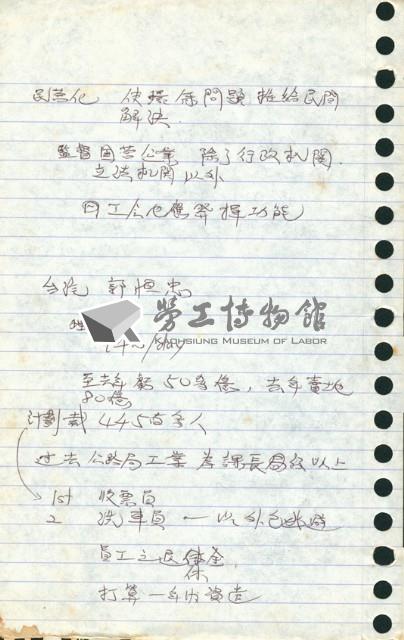 民營化 使環保問題推給民間
解決.
監督國營企業 除了行政机関.
立法机関以外
因工会也應發揮功能
台汽 郭恒忠
勞工博物館
KAOHSIUNG MUSEUM OF LABOR
/day
至去年虧50多億,去年賣地
80億
計劃裁 445百多人
过去公路局工業 為課長層級以上
1st 收票員
2 洗車員 一以外包
員工之退休金.
休
打算一年内資遣